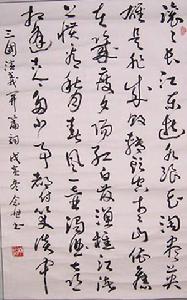 滚滚长江东逝水浪花淘尽英
雄是非成败转头空青山依旧
在几度夕阳红白发渔樵江渚
上惯看秋月春风一壶浊酒喜
相逢古今多少事都付笑谈中
三國演義開篇詞